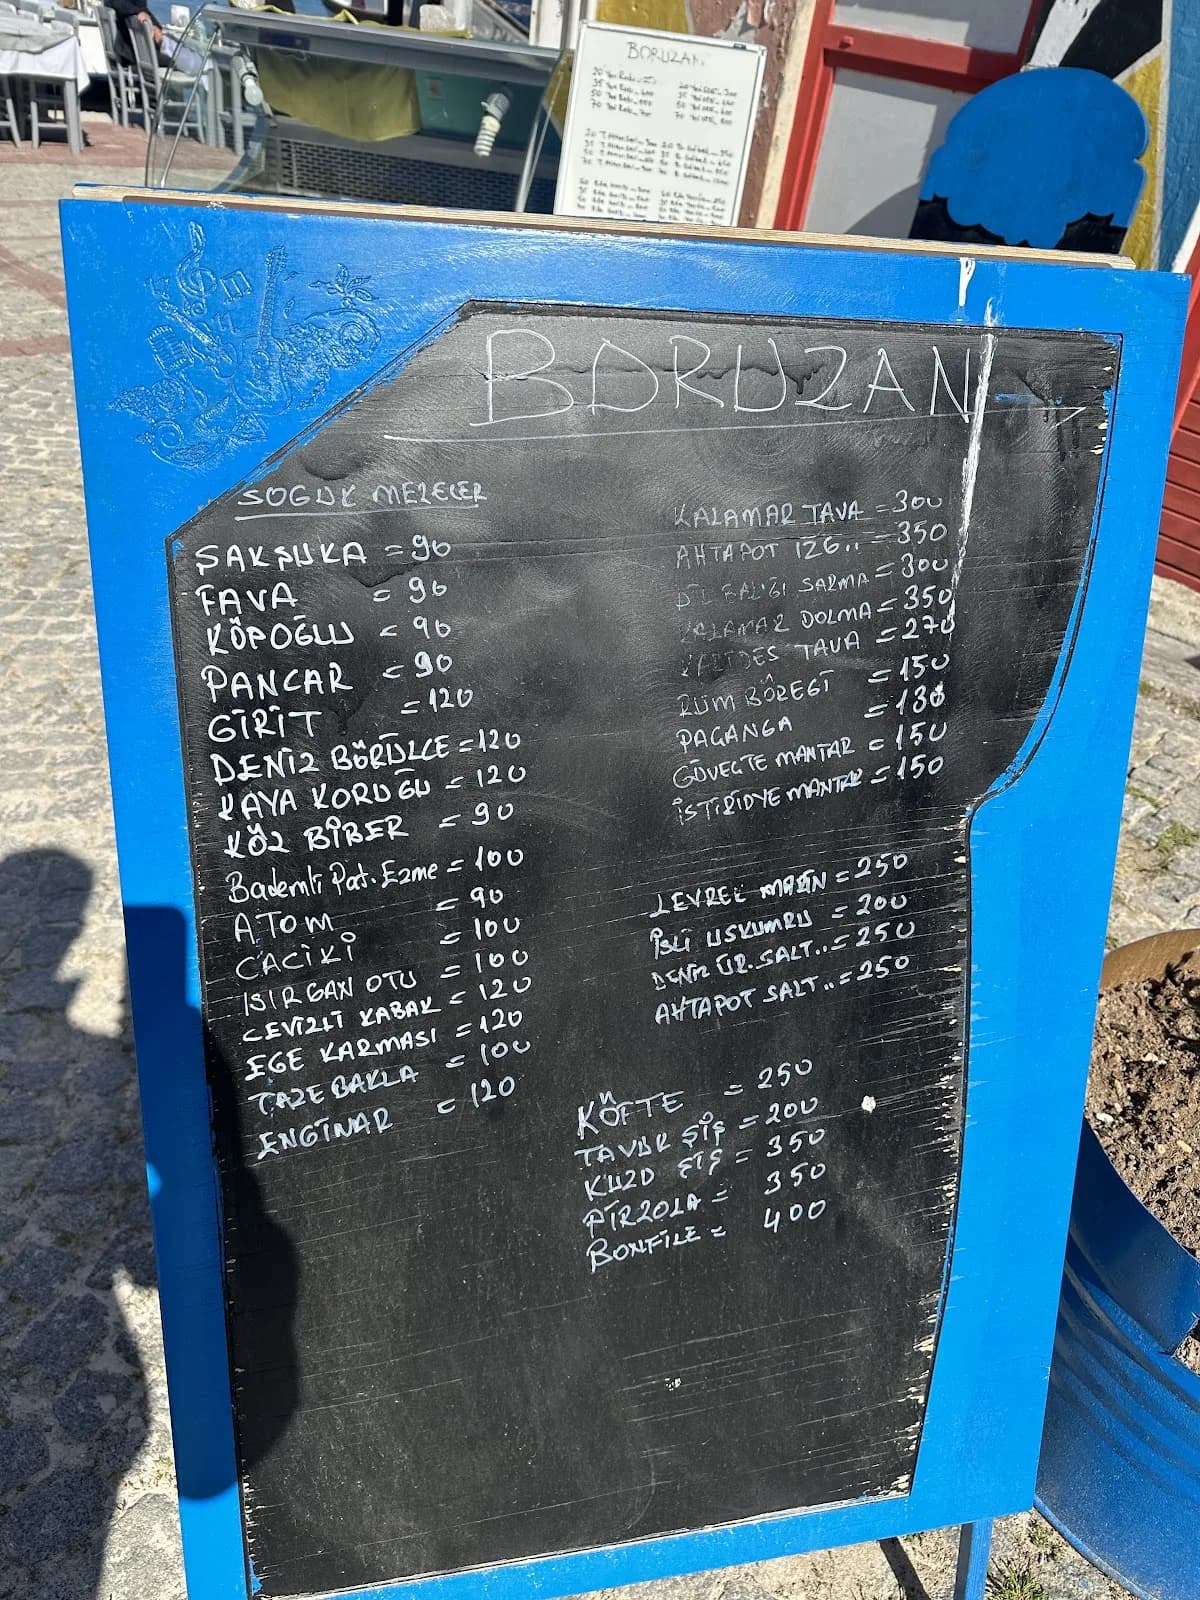 BORUZAN
BORUZAN
SOGUK MEZELER
ŞAKŞUKA = 90
FAVA = 90
KÖPOĞLU = 90
PANCAR = 90
GİRİT = 120
DENİZ BÖRÜLCE = 120
KAYA KORUĞU = 120
KÖZ BİBER = 90
Bademli Pat. Ezme = 100
ATOM = 90
CACIKİ = 100
ISIRGAN OTU = 100
CEVİZLİ KABAK = 120
EGE KARMASI = 120
TAZE BAKLA = 100
ENGİNAR = 120
KALAMAR TAVA = 300
AHTAPOT IZG.. = 350
DİL BALIĞI SARMA = 300
KALAMAR DOLMA = 350
KARİDES TAVA = 270
RUM BÖREGİ = 150
PAÇANGA = 130
GÜVEÇTE MANTAR = 150
İSTİRİDYE MANTAR = 150
LEVREK MARİN = 250
İSLİ USKUMRU = 200
DENİZ ÜR. SALT.. = 250
AHTAPOT SALT.. = 250
KÖFTE = 250
TAVUK ŞİŞ = 200
KUZU ŞİŞ = 350
PİRZOLA = 350
BONFİLE = 400